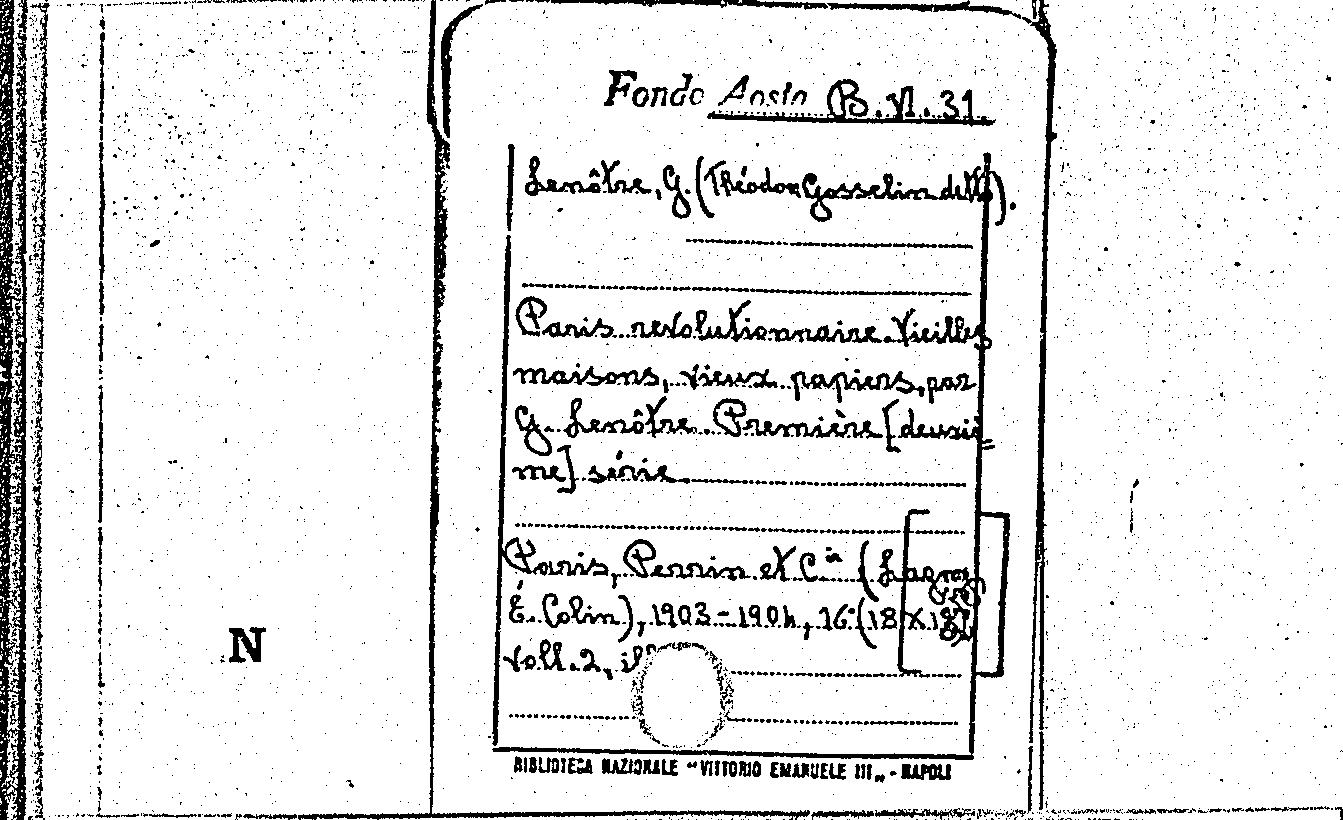 Fondo Aosta B.VI.31.
Lenôtre, G. (Théodore Gosselin detto).
Paris revolutionnaire. Vieilles
maisons, vieux papiers, par
G. Lenôtre. Première [deuxiè=
me] série.
Paris, Perrin et C.ie (Lagny,
É. Colin), 1903-1904, 16° (18 X
voll. 2, ill
N
BIBLIOTECA NAZIONALE "VITTORIO EMANUELE III„ - NAPOLI